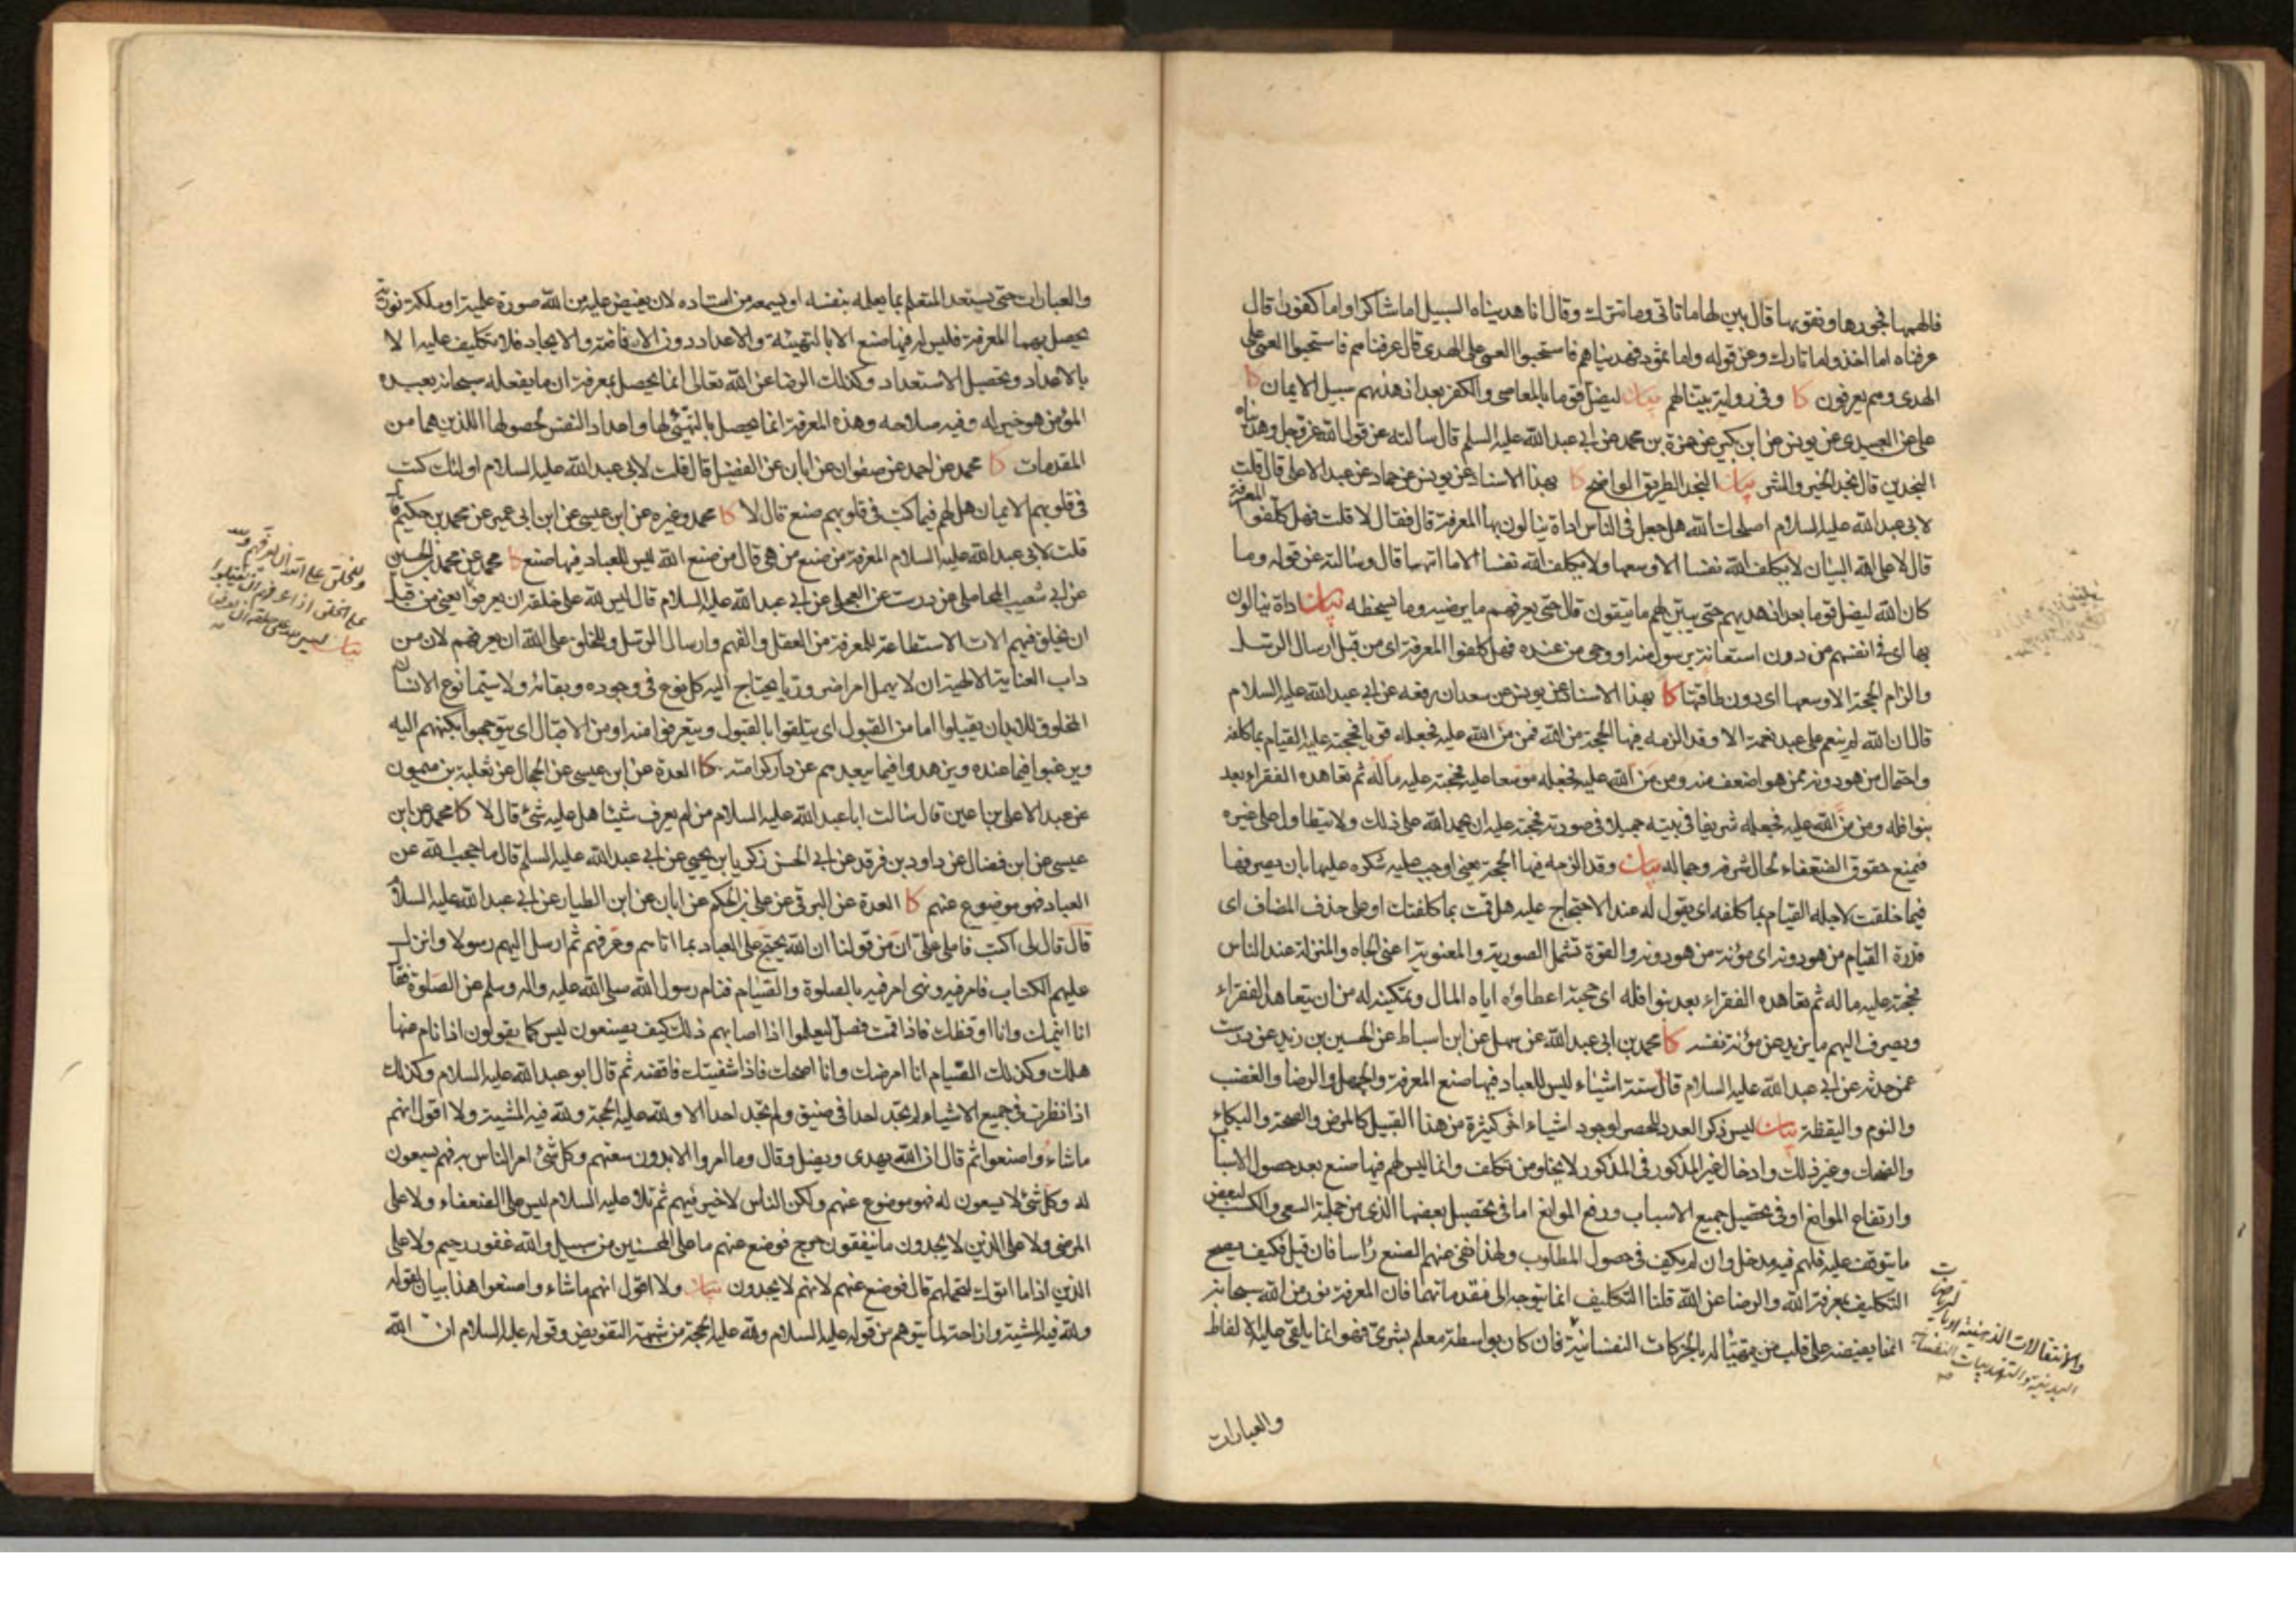 فالهمها فجورها وتقويها قال بين لها ما تاتى وما تترك وقال انا هديناه السبيل اما شاكرا واما كفورا قال
عرفناه اما اخذ واما تارك وعن قوله واما ثمود فهديناهم فاستحبوا العمى على الهدى قال عرفناهم فاستحبوا العمى على
الهدى وهم يعرفون كا وفى رواية بينا لهم بيان ليضل قوما بالمعاصى والكفر بعد اذ هديهم سبيل الايمان كا
على عن العبيدى عن يونس عن ابن بكير عن حمزة بن محمد عن ابى عبد الله عليه السلم قال سالته عن قول الله عز وجل وهديناه
النجدين قال نجد الخير والشر بيان النجد الطريق الواضح كا بهذا الاسناد عن يونس عن حماد عن عبد الاعلى قال قلت
لابى عبد الله عليه السلام اصلحك الله هل جعل فى الناس اداة ينالون بها المعرفة قال فقال لا قلت فهل كلفوا المعرفة
قال لا على الله البيان لا يكلف الله نفسا الا وسعها ولا يكلف الله نفسا الا ما اتيها قال وسالته عن قوله وما
كان الله ليضل قوما بعد اذ هديهم حتى يبين لهم ما يتقون قال حتى يعرفهم ما يرضيه وما يسخطه بيان اداة ينالون
بها اى فى انفسهم من دون استعانة برسول منه او وحى من عنده فهل كلفوا المعرفة اى من قبل ارسال الرسل
والزام الحجة الا وسعها اى دون طاقتها كا بهذا الاسناد عن يونس عن سعدان رفعه عن ابى عبد الله عليه السلام
قال ان الله لم ينعم على عبد نعمة الا وقد الزمه فيها الحجة من الله فمن من الله عليه فجعله قويا فحجته عليه القيام بما كلفه
واحتمال من هو دونه ممن هو اضعف منه ومن من الله عليه فجعله موسعا عليه فحجته عليه ماله ثم تعاهده الفقراء بعد
بنوافله ومن من الله عليه فجعله شريفا فى بيته جميلا فى صورته فحجته عليه ان يحمد الله على ذلك ولا يتطاول على غيره
فيمنع حقوق الضعفاء لحال شرفه وجماله بيان وقد الزمه فيها الحجة يعنى اوجب عليه شكره عليها بان يصرفها
فيما خلقت لاجله القيام بما كلفه اى يقول له عند الاحتجاج عليه هل قمت بما كلفتك او على حذف المضاف اى
قدرة القيام من هو دونه اى مؤنة من هو دونه والقوة تشمل الصورية والمعنوية اعنى الجاه والمنزلة عند الناس
فحجته عليه ماله ثم تعاهده الفقراء بعد بنوافله اى حجته اعطاؤه اياه المال وتمكينه له من ان يتعاهد الفقراء
ويصرف اليهم ما يزيد عن مؤنة نفسه كا محمد بن ابى عبد الله عن سهل عن ابن اسباط عن الحسين بن زيد عن درست
عمن حدثه عن ابى عبد الله عليه السلام قال ستة اشياء ليس للعباد فيها صنع المعرفة والجهل والرضا والغضب
والنوم واليقظة بيان ليس ذكر العدد للحصر لوجود اشياء اخر كثيرة من هذا القبيل كالمرض والصحة والبكاء
والضحك وغير ذلك وادخال غير المذكور فى المذكور لا يخلو من تكلف وانما ليس لهم فيها صنع بعد حصول الاسبا
وارتفاع الموانع او فى تحصيل جميع الاسباب ورفع الموانع اما فى تحصيل بعضها الذى من جملة السعى والكسب لبعض
ما يتوقف عليه فلهم فيه مدخل وان لم يكف فى حصول المطلوب ولهذا نفى عنهم الصنع راسا فان قيل فكيف يصح
التكليف بمعرفة الله والرضا عن الله قلنا التكليف انما يتوجه الى مقدماتهما فان المعرفة نور من الله سبحانه
انما يفيضه على قلب من يتهيأ له بالحركات النفسانية فان كان بواسطة معلم بشرى فهو انما يلقى عليه الالفاظ
والانتقالات الذهنية او بالرياضات
البدنية والتهذيبات النفسانية
والعبارات
والعبارات حتى يستعد المتعلم بما يعلمه بنفسه او يسمعه من استاده لان يفيض عليه من الله صورة علمية او ملكة نورية
يحصل بهما المعرفة فليس له فيها صنع الا بالتهيئة والاعداد دون الافاضة والايجاد فلا تكليف عليه الا
بالاعداد وتحصيل الاستعداد وكذلك الرضا عن الله تعالى انما يحصل بمعرفة ان ما يفعله سبحانه بعبده
المؤمن هو خير له وفيه صلاحه وهذه المعرفة انما يحصل بالتهيئ لها واعداد النفس لحصولها اللذين هما من
المقدمات كا محمد عن احمد عن صفوان عن ابان عن الفضيل قال قلت لابى عبد الله عليه السلام اولئك كتب
فى قلوبهم الايمان هل لهم فيما كتب فى قلوبهم صنع قال لا كا محمد وغيره عن ابن عيسى عن ابن ابى عمير عن محمد بن حكيم قال
قلت لابى عبد الله عليه السلام المعرفة من صنع من هى قال من صنع الله ليس للعباد فيها صنع كا محمد عن محمد بن الحسين
عن ابى شعيب المحاملى عن درست عن العجلى عن ابى عبد الله عليه السلام قال ليس لله على خلقه ان يعرفوا يعنى من قبل
وللخلق على الله ان يعرفهم ولله
على الخلق اذا عرفهم ان يقبلوا
بيان ليس لله على خلقه ان يعرفوا
ان يخلق فيهم الات الاستطاعة للمعرفة من العقل والفهم وارسال الرسل وللخلق على الله ان يعرفهم لان من
داب العناية الالهية ان لا يهمل امرا ضروريا يحتاج اليه كل نوع فى وجوده وبقائه ولا سيما نوع الانسان
المخلوق للابد ان يقبلوا اما من القبول اى يتلقوا بالقبول ويتعرفوا منه او من الاقبال اى يتوجهوا بكنههم اليه
ويرغبوا فيما عنده ويزهدوا فيما يبعدهم عن دار كرامته كا العدة عن ابن عيسى عن الحجال عن ثعلبة بن ميمون
عن عبد الاعلى بن اعين قال سالت ابا عبد الله عليه السلام من لم يعرف شيئا هل عليه شئ قال لا كا محمد عن ابن
عيسى عن ابن فضال عن داود بن فرقد عن ابى الحسن زكريا بن يحيى عن ابى عبد الله عليه السلم قال ما حجب الله عن
العباد فهو موضوع عنهم كا العدة عن البرقى عن على بن الحكم عن ابان عن ابن الطيار عن ابى عبد الله عليه السلام
قال قال لى اكتب فاملى على ان من قولنا ان الله يحتج على العباد بما اتاهم وعرفهم ثم ارسل اليهم رسولا وانزل
عليهم الكتاب فامر فيه ونهى امر فيه بالصلوة والصيام فنام رسول الله صلى الله عليه واله وسلم عن الصلوة فقال
انا انيمك وانا اوقظك فاذا قمت فصل ليعلموا اذا اصابهم ذلك كيف يصنعون ليس كما يقولون اذا نام عنها
هلك وكذلك الصيام انا امرضك وانا اصحك فاذا شفيتك فاقضه ثم قال ابو عبد الله عليه السلام وكذلك
اذا نظرت فى جميع الاشياء لم تجد احدا فى ضيق ولم تجد احدا الا ولله عليه الحجة ولله فيه المشية ولا اقول انهم
ما شاءوا صنعوا ثم قال ان الله يهدى ويضل وقال وما امروا الا بدون سعتهم وكل شئ امر الناس به فهم يسعون
له وكل شئ لا يسعون له فهو موضوع عنهم ولكن الناس لا خير فيهم ثم تلا عليه السلام ليس على الضعفاء ولا على
المرضى ولا على الذين لا يجدون ما ينفقون حرج فوضع عنهم ما على المحسنين من سبيل والله غفور رحيم ولا على
الذين اذا ما اتوك لتحملهم قال فوضع عنهم لانهم لا يجدون بيان ولا اقول انهم ما شاءوا صنعوا هذا بيان لقوله
ولله فيه المشية وازاحة لما يتوهم من قوله عليه السلام ولله عليه الحجة من شبهة التفويض وقوله عليه السلام ان الله